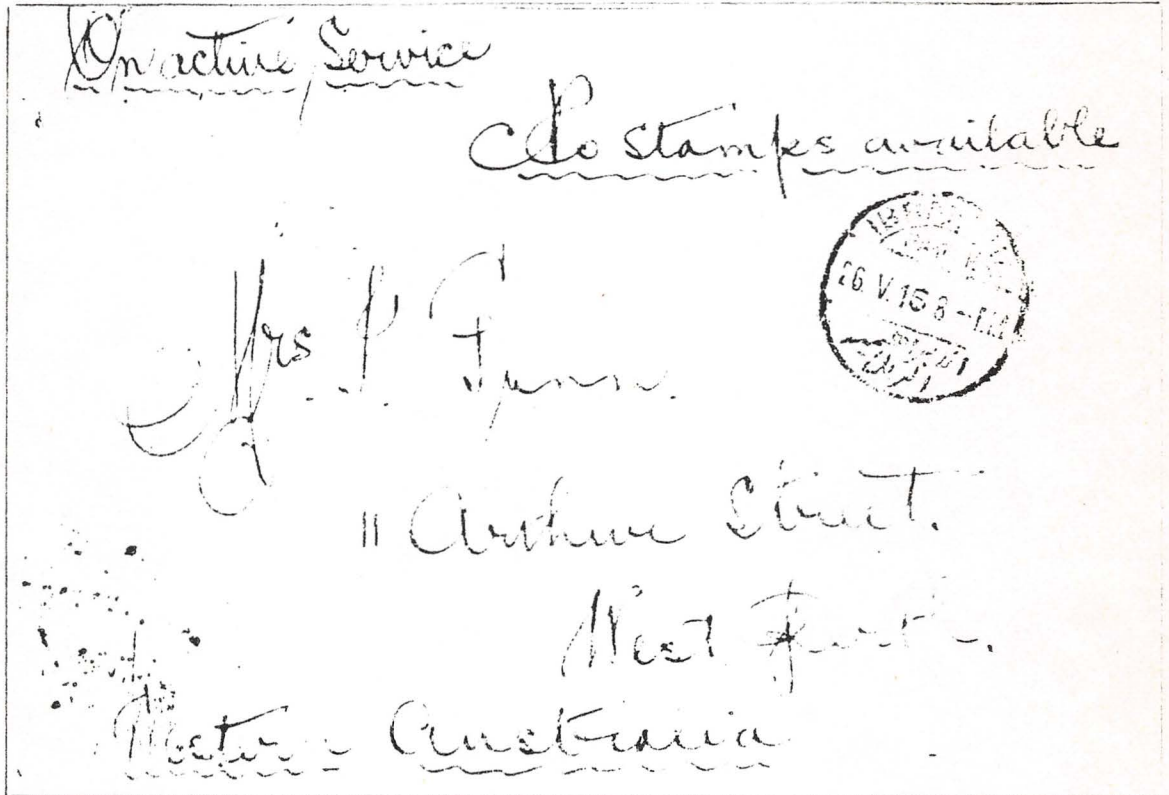 On active Service
No stamps available
26. V. 15 8-
Mrs. P. Gunn.
11 Arthur Street.
West Perth.
Western Australia